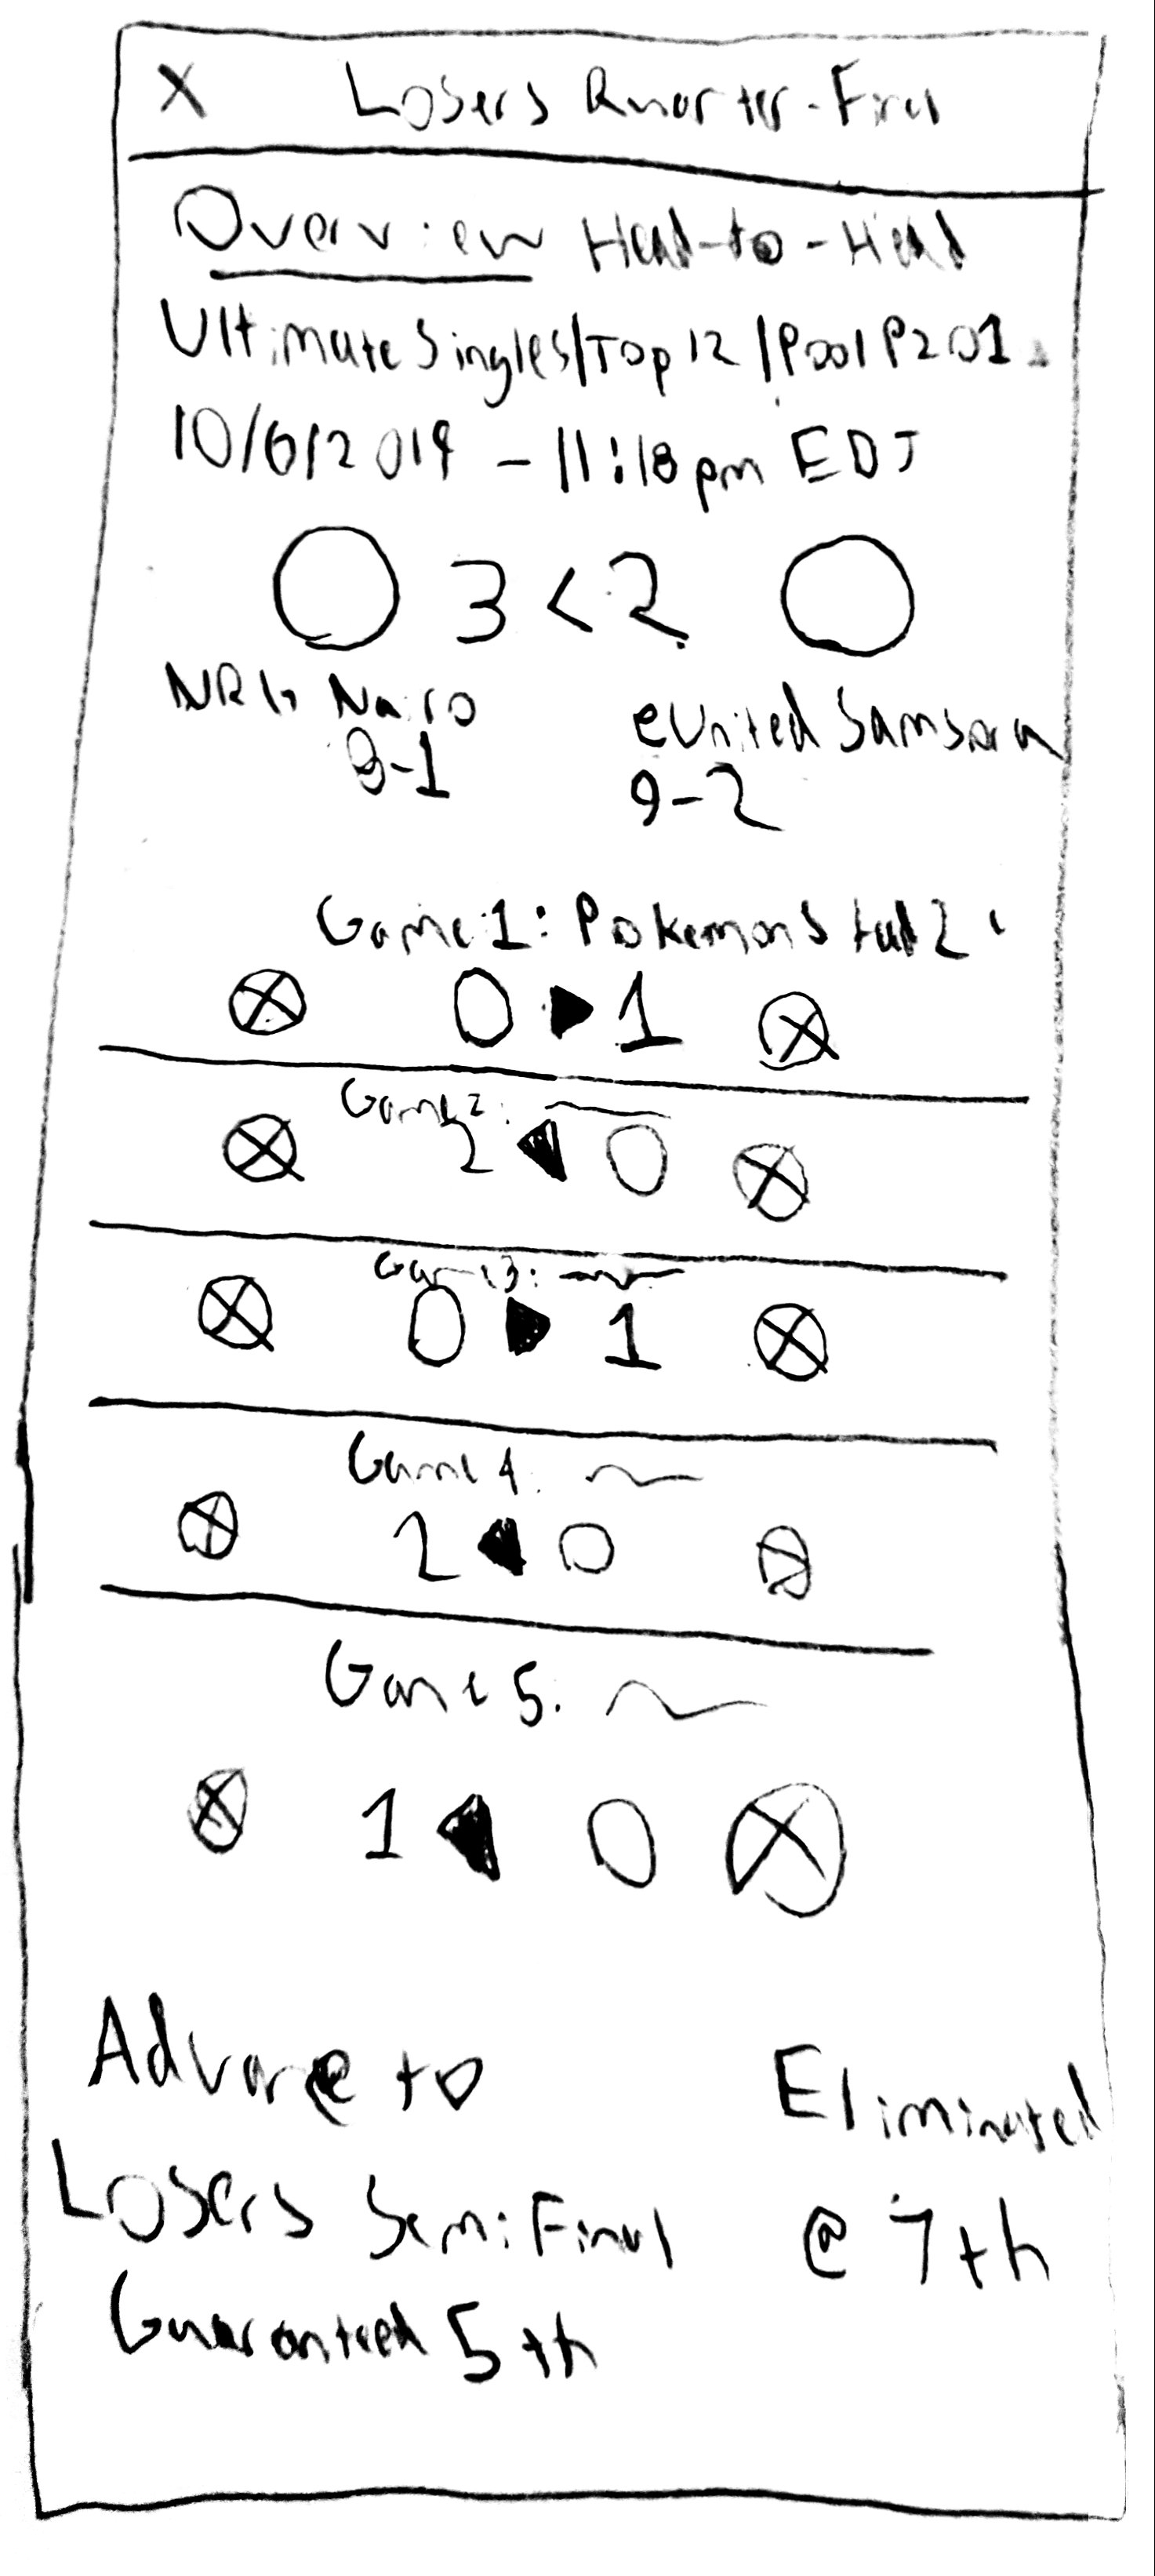 X Losers Quarter-Final
Overview Head-to-Head
Ultimate Singles/Top 12/Pool P201
10/6/2019 - 11:18 pm EDT
3 < 2
NRG Nairo eUnited Samsora
9-2
Game 1: Pokemon Stad 2
0 ▶ 1
Game 2:
2 ◀ 0
Game 3:
0 ▶ 1
Game 4:
2 ◀ 0
Game 5:
1 ◀ 0
Advance to Eliminated
Losers Semi Final @ 7th
Guaranteed 5th